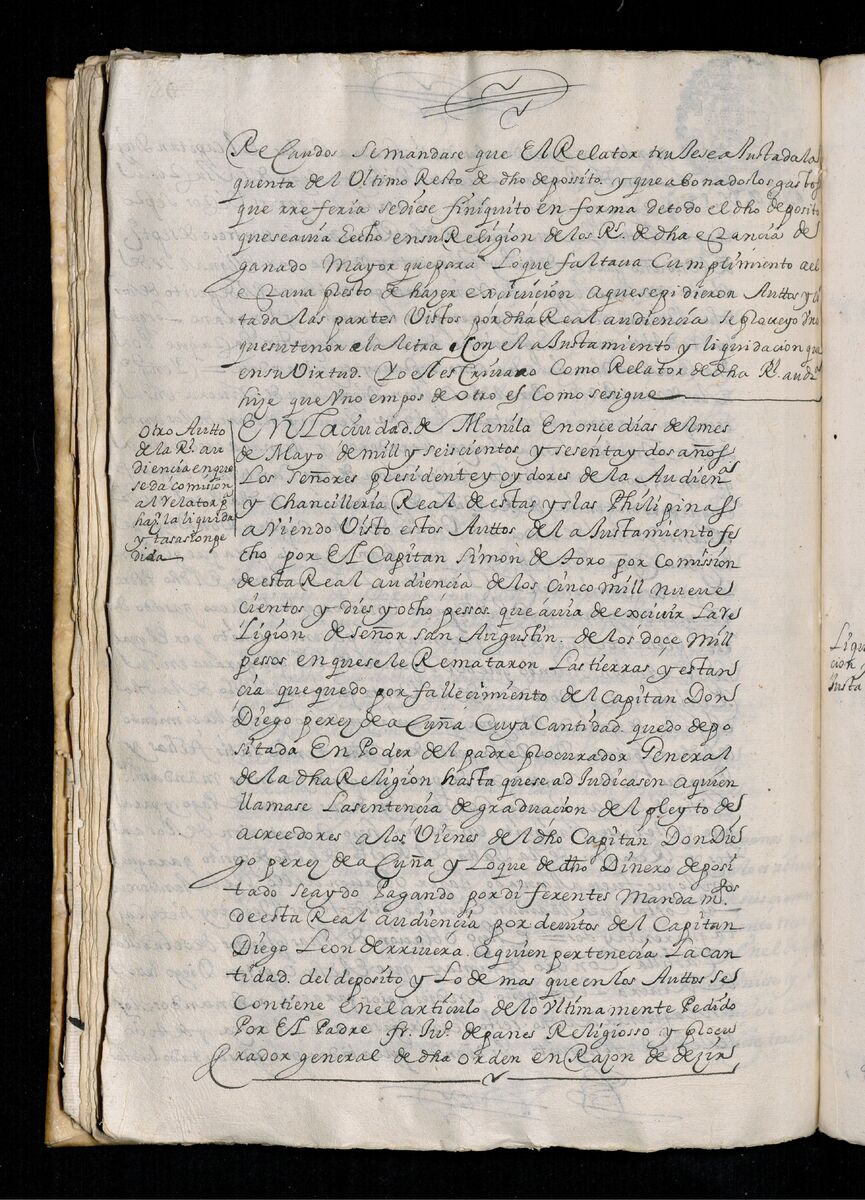 Recaudos Semandase que El Relator trujese ajustada la
quenta del Ultimo Resto de dho depossito. y que abonados los gastos
que rreferia sediese finiquito en forma detodo el dho deposito
queseauia Eecho ensu Religion de los Rs. de dha estancia de
ganado Mayor quepara Loque faltaua Cumplimiento ael
estaua presto de hazer exciuicion aquesepidieron Auttos y ci
tadas las partes Vistos por dha Real audiencia se proueyo Vno
quesutenor a la letra Con el ajustamiento y liquidacion que
ensu Virtud. Yo el escriuano Como Relator de dha Rl. audia
hize que Vno empos de otro es Como sesigue
Otro Autto
de la Rl. au
diencia enque
seda comision
al relator pa
haz. la liquida
y tasasionpe
dida
EN La ciudad. de Manila En once dias del mes
de Mayo de mill y seiscientos y sesenta y dos años
Los señores presidente y oydores de la Audiena
y Chancilleria Real de estas yslas Philipinas
aViendo Visto estos Auttos del ajustamiento fe
cho por El Capitan Simon de toro por Comission
de esta Real audiencia de los cinco mill nueue
cientos y dies y otho pessos que auia de exciuir La Re
ligion de señor san Augustin. de los doce mill
pessos enquesele Remataron Las tierras y estan
cia que quedo por fallecimiento del Capitan Don
Diego perez de acuña Cuya Cantidad. quedo depo
sitada En Poder del padre procurador General
de la dha Religion hasta quese adjudicasen aquien
llamase La sentencia de graduacion del pleyto de
acreedores a los Vienes del dho Capitan Don Die
go perez de acuña y Loque de dho Dinero deposi
tado seaydo Pagando por diferentes Manda mtos
de esta Real audiencia por deuitos del Capitan
Diego Leon de rriuera. aquien pertenecia La can
tidad. del deposito y Lo demas que en los Auttos se
Contiene En el articulo de lo Vltimamente Pedido
Por El Padre fr. Jun. de panes Religiosso y procu
rador general de dha orden en Razon de dezir